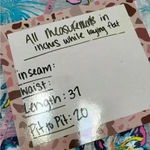 All Measurements in
inches while laying flat
Inseam:
Waist:
Length: 37
Pit to Pit: 20